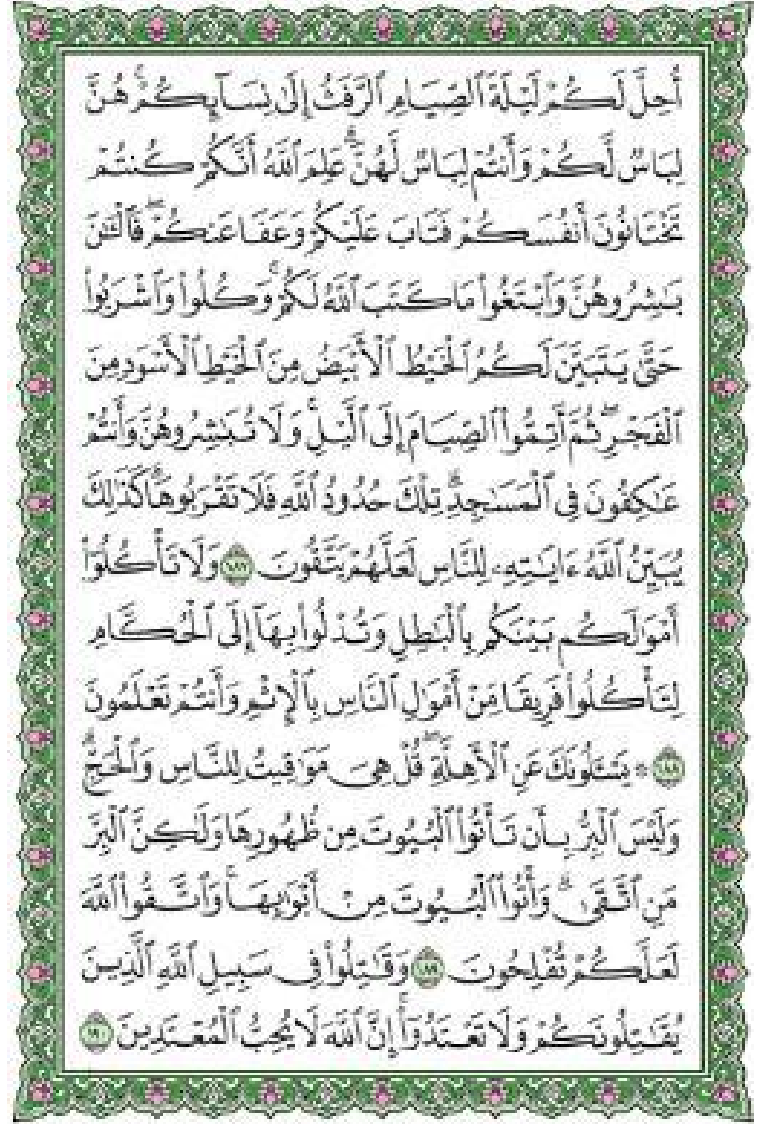 أُحِلَّ لَكُمْ لَيْلَةَ ٱلصِّيَامِ ٱلرَّفَثُ إِلَىٰ نِسَآئِكُمْ ۚ هُنَّ
لِبَاسٌ لَّكُمْ وَأَنتُمْ لِبَاسٌ لَّهُنَّ ۗ عَلِمَ ٱللَّهُ أَنَّكُمْ كُنتُمْ
تَخْتَانُونَ أَنفُسَكُمْ فَتَابَ عَلَيْكُمْ وَعَفَا عَنكُمْ ۖ فَٱلْـَٰٔنَ
بَٰشِرُوهُنَّ وَٱبْتَغُوا۟ مَا كَتَبَ ٱللَّهُ لَكُمْ ۚ وَكُلُوا۟ وَٱشْرَبُوا۟
حَتَّىٰ يَتَبَيَّنَ لَكُمُ ٱلْخَيْطُ ٱلْأَبْيَضُ مِنَ ٱلْخَيْطِ ٱلْأَسْوَدِ مِنَ
ٱلْفَجْرِ ۖ ثُمَّ أَتِمُّوا۟ ٱلصِّيَامَ إِلَى ٱلَّيْلِ ۚ وَلَا تُبَٰشِرُوهُنَّ وَأَنتُمْ
عَٰكِفُونَ فِى ٱلْمَسَٰجِدِ ۗ تِلْكَ حُدُودُ ٱللَّهِ فَلَا تَقْرَبُوهَا ۗ كَذَٰلِكَ
يُبَيِّنُ ٱللَّهُ ءَايَٰتِهِۦ لِلنَّاسِ لَعَلَّهُمْ يَتَّقُونَ ١٨٧ وَلَا تَأْكُلُوٓا۟
أَمْوَٰلَكُم بَيْنَكُم بِٱلْبَٰطِلِ وَتُدْلُوا۟ بِهَآ إِلَى ٱلْحُكَّامِ
لِتَأْكُلُوا۟ فَرِيقًا مِّنْ أَمْوَٰلِ ٱلنَّاسِ بِٱلْإِثْمِ وَأَنتُمْ تَعْلَمُونَ
١٨٨ ۞ يَسْـَٔلُونَكَ عَنِ ٱلْأَهِلَّةِ ۖ قُلْ هِىَ مَوَٰقِيتُ لِلنَّاسِ وَٱلْحَجِّ ۗ
وَلَيْسَ ٱلْبِرُّ بِأَن تَأْتُوا۟ ٱلْبُيُوتَ مِن ظُهُورِهَا وَلَٰكِنَّ ٱلْبِرَّ
مَنِ ٱتَّقَىٰ ۗ وَأْتُوا۟ ٱلْبُيُوتَ مِنْ أَبْوَٰبِهَا ۚ وَٱتَّقُوا۟ ٱللَّهَ
لَعَلَّكُمْ تُفْلِحُونَ ١٨٩ وَقَٰتِلُوا۟ فِى سَبِيلِ ٱللَّهِ ٱلَّذِينَ
يُقَٰتِلُونَكُمْ وَلَا تَعْتَدُوٓا۟ ۚ إِنَّ ٱللَّهَ لَا يُحِبُّ ٱلْمُعْتَدِينَ ١٩٠